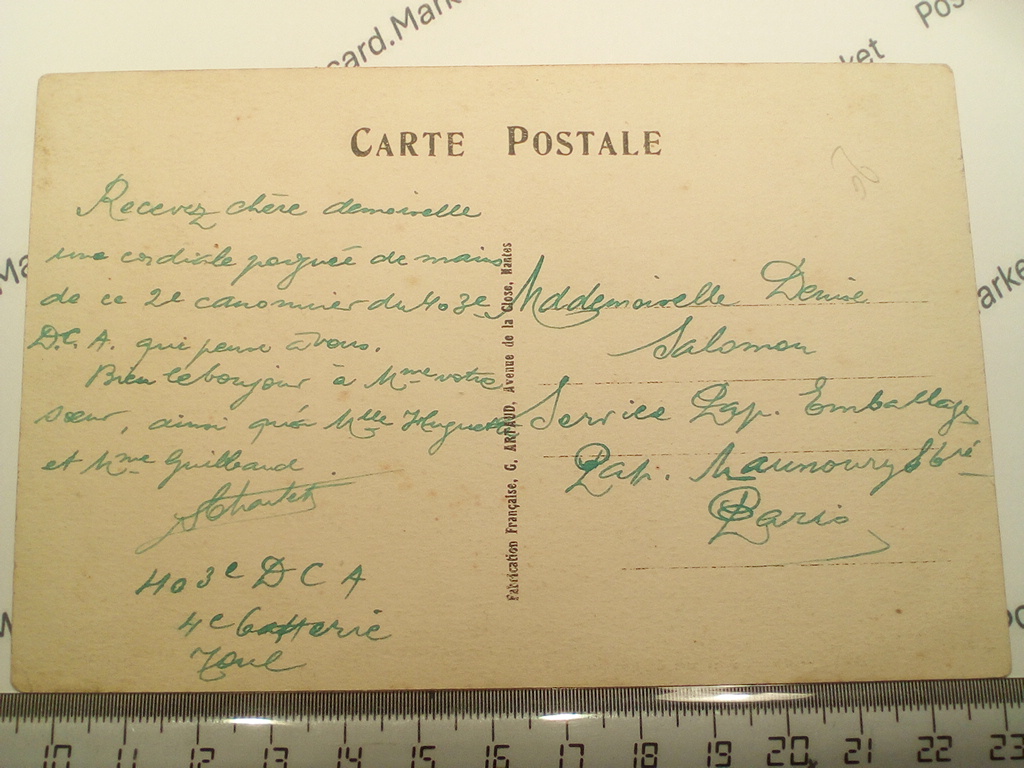 CARTE POSTALE
Recevez chère demoiselle
une cordiale poignée de mains
de ce 2e canonnier du 403e
D.C.A. qui pense à vous.
Bien le bonjour à Mme votre
sœur, ainsi qu'à Mlle Huguette
et Mme Guilbaud.
403e D C A
4e batterie
Toul
Fabrication Française, G. ARTAUD, Avenue de la Close, Nantes
Mademoiselle Denise
Salomon
Service Pap. Emballage
Pap. Maunoury
Paris
card.Mark
ket
Pos
Ma
arke
10 11 12 13 14 15 16 17 18 19 20 21 22 23